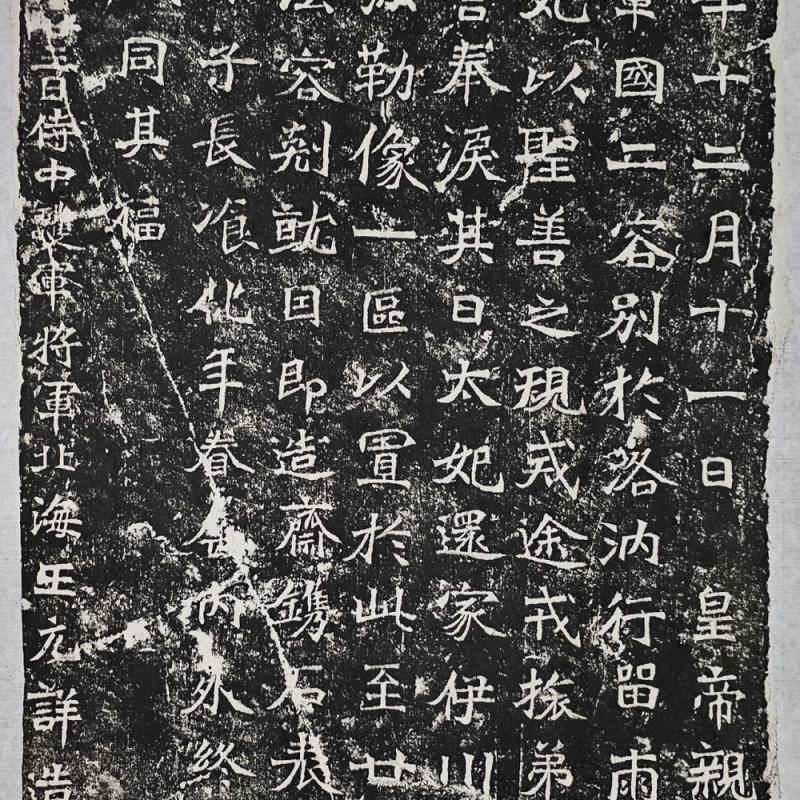 年十二月十一日　皇帝親
軍國二容別於洛汭行留兩
妃以聖善之規戒途戎旅弟
言奉淚其日太妃還家伊川
勒像一區以置於此至廿
法容剋就因即造齋鐫石表
子長飡化年眷屬内外終
同其福
三日侍中護軍將軍北海王元詳造